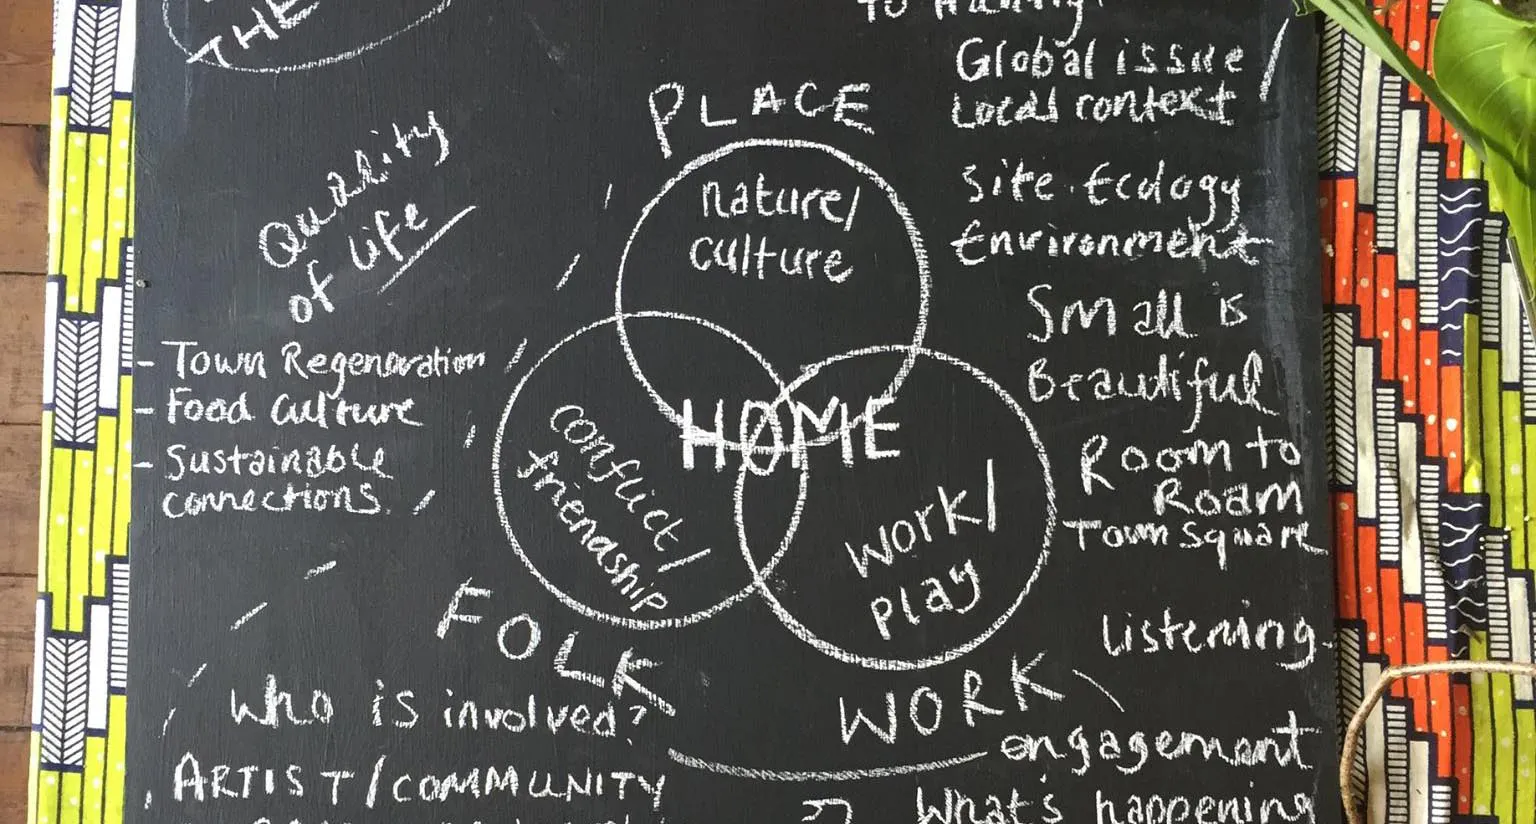 THE
Quality
of life
- Town Regeneration
- Food Culture
- Sustainable
connections.
PLACE
nature/
culture
HOME
conflict/
friendship
work/
play
FOLK
WORK
Global issue /
Local context
Site. Ecology
Environment
Small is
Beautiful
Room to
Roam
Town Square
Listening.
engagement
What's happening
Who is involved?
ARTIST/COMMUNITY